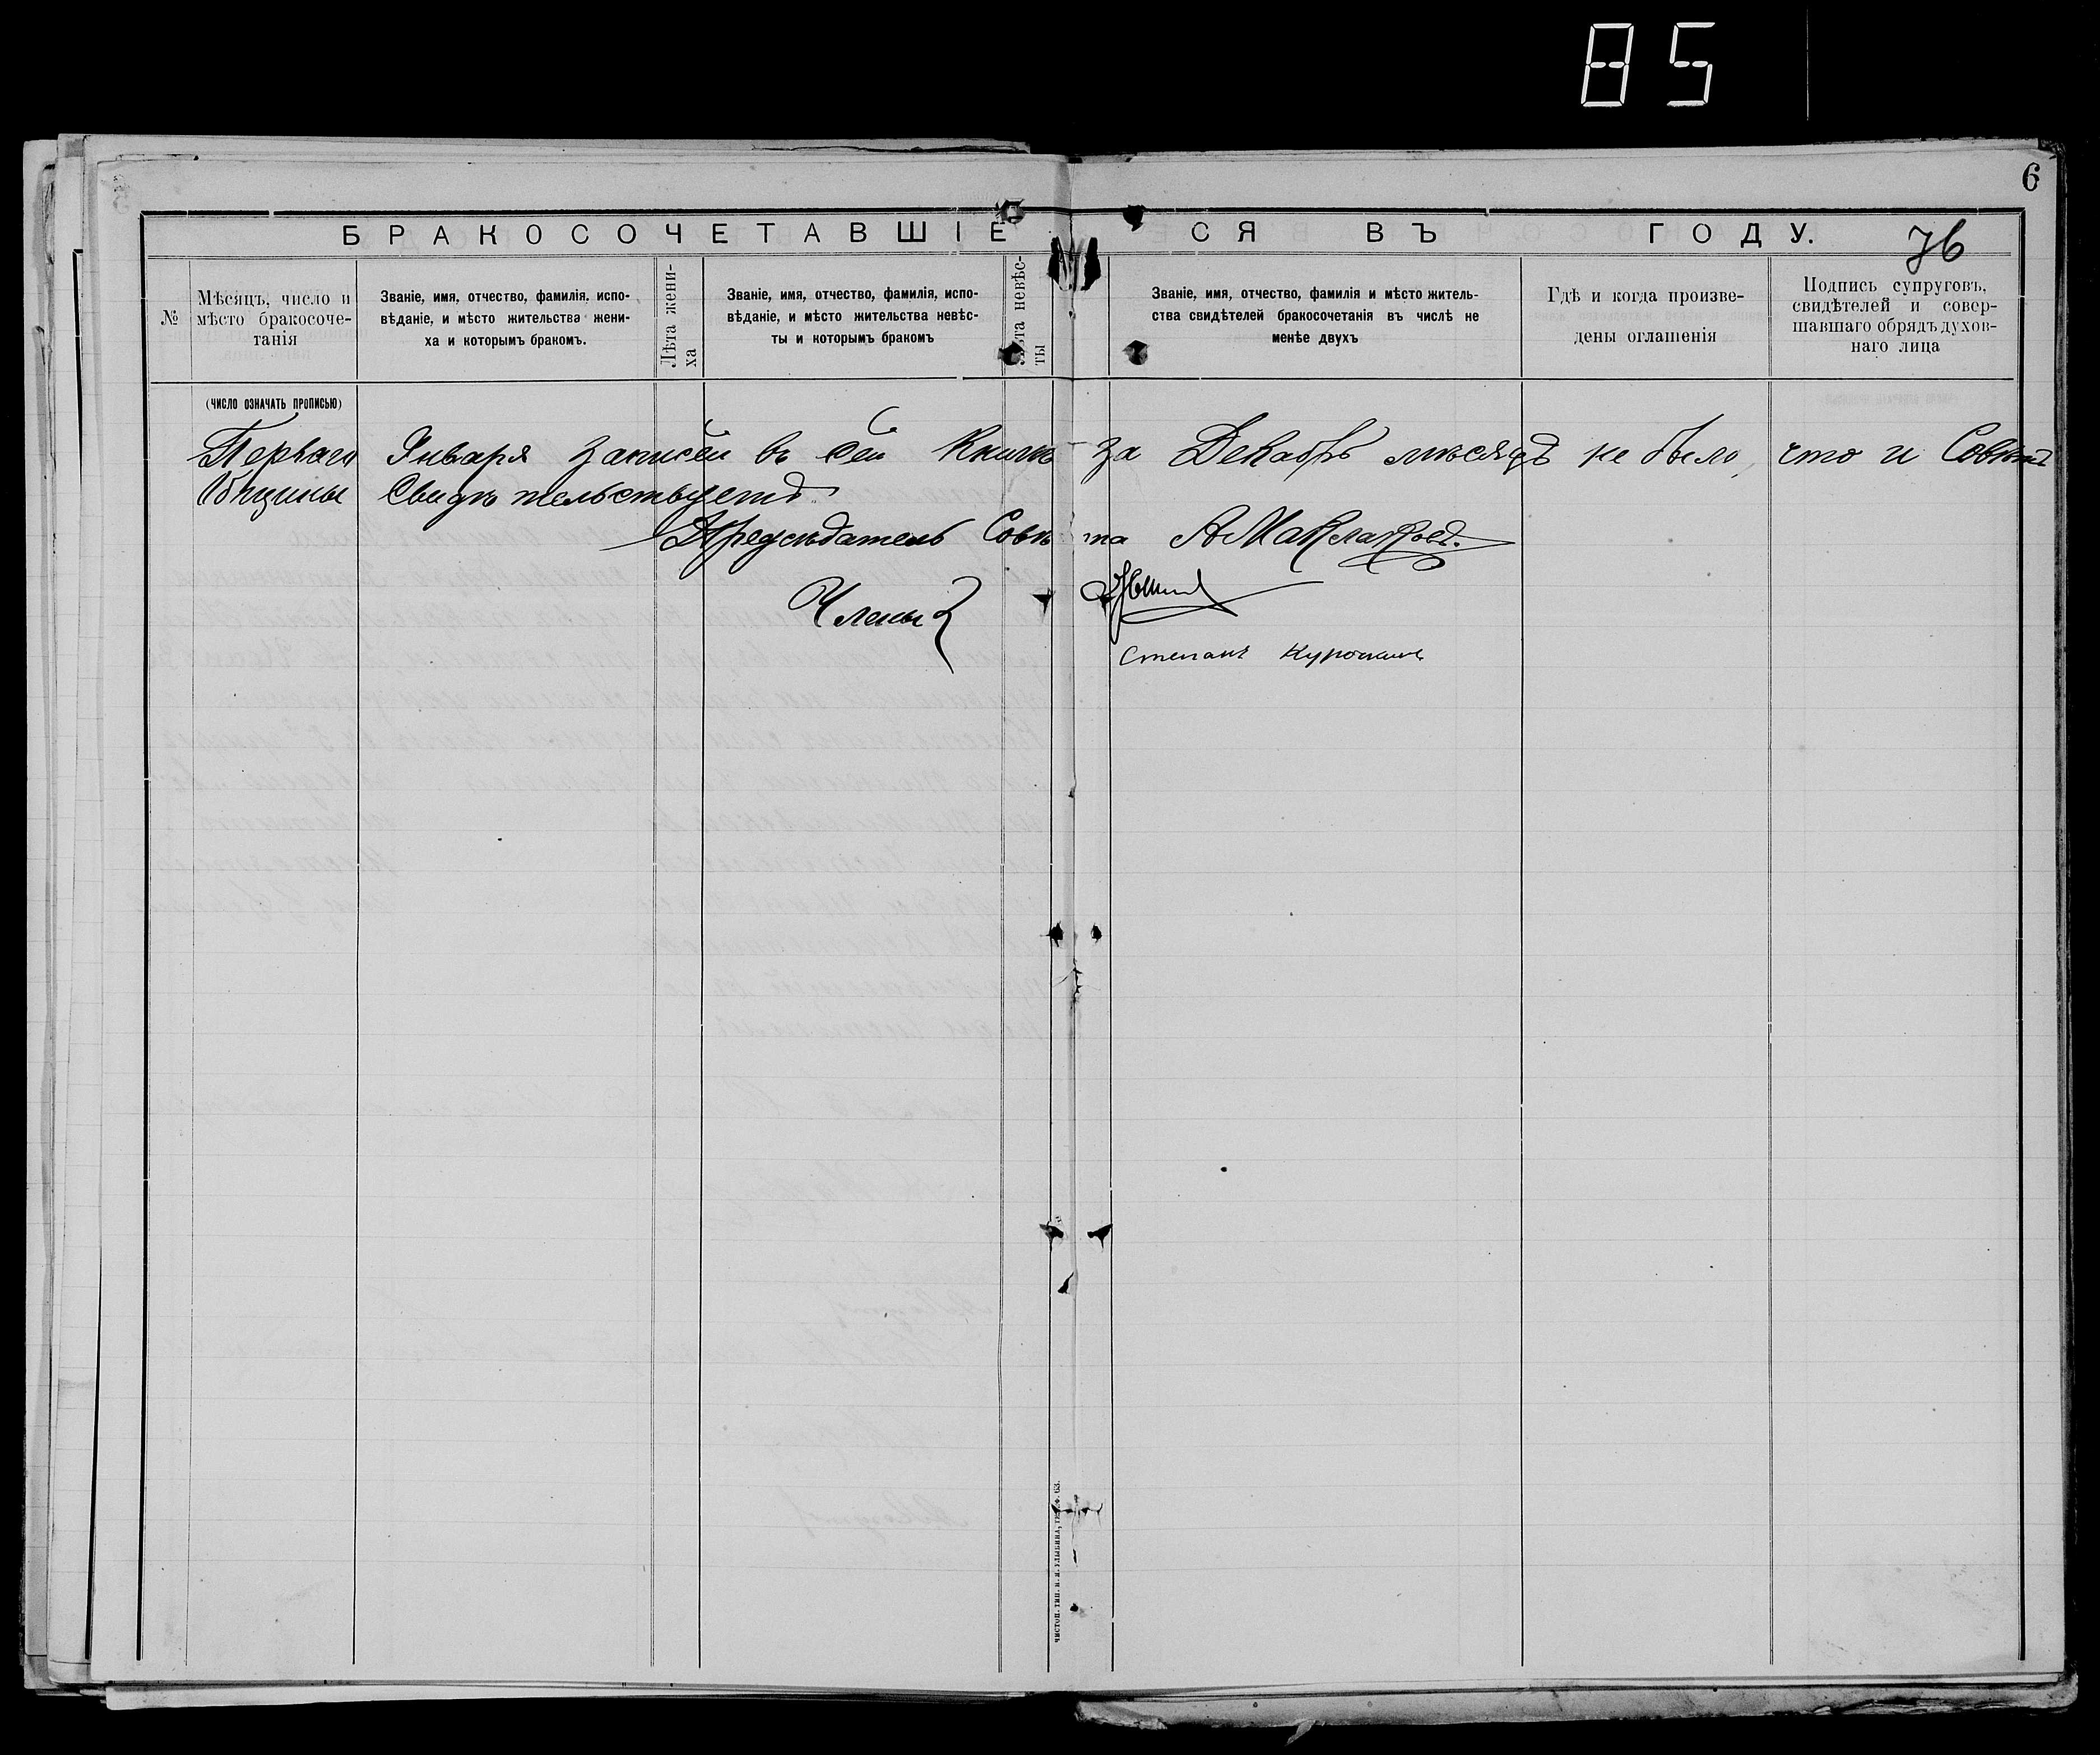 85
6
БРАКОСОЧЕТАВШІЕСЯ ВЪ ГОДУ.
76
№
Мѣсяцъ, число и
мѣсто бракосоче-
танія
Званіе, имя, отчество, фамилія, испо-
вѣданіе, и мѣсто жительства жени-
ха и которымъ бракомъ.
Лѣта жени-
ха
Званіе, имя, отчество, фамилія, испо-
вѣданіе, и мѣсто жительства невѣс-
ты и которымъ бракомъ
Лѣта невѣс-
ты
Званіе, имя, отчество, фамилія и мѣсто житель-
ства свидѣтелей бракосочетанія въ числѣ не
менѣе двухъ
Гдѣ и когда произве-
дены оглашенія
Подпись супруговъ,
свидѣтелей и совер-
шавшаго обрядъ духов-
наго лица
(ЧИСЛО ОЗНАЧАТЬ ПРОПИСЬЮ)
Перваго Января записей въ сей Книгѣ за Декабрь мѣсяцъ не было, что и Совѣтъ
Общины Свидѣтельствуетъ
Предсѣдатель Совѣта А Маклаковъ.
Члены
Степанъ Курочкинъ
ЧИСТОП. ТИП. И. Я. УЛЫБИНА, ТЕЛЕФ. 63.